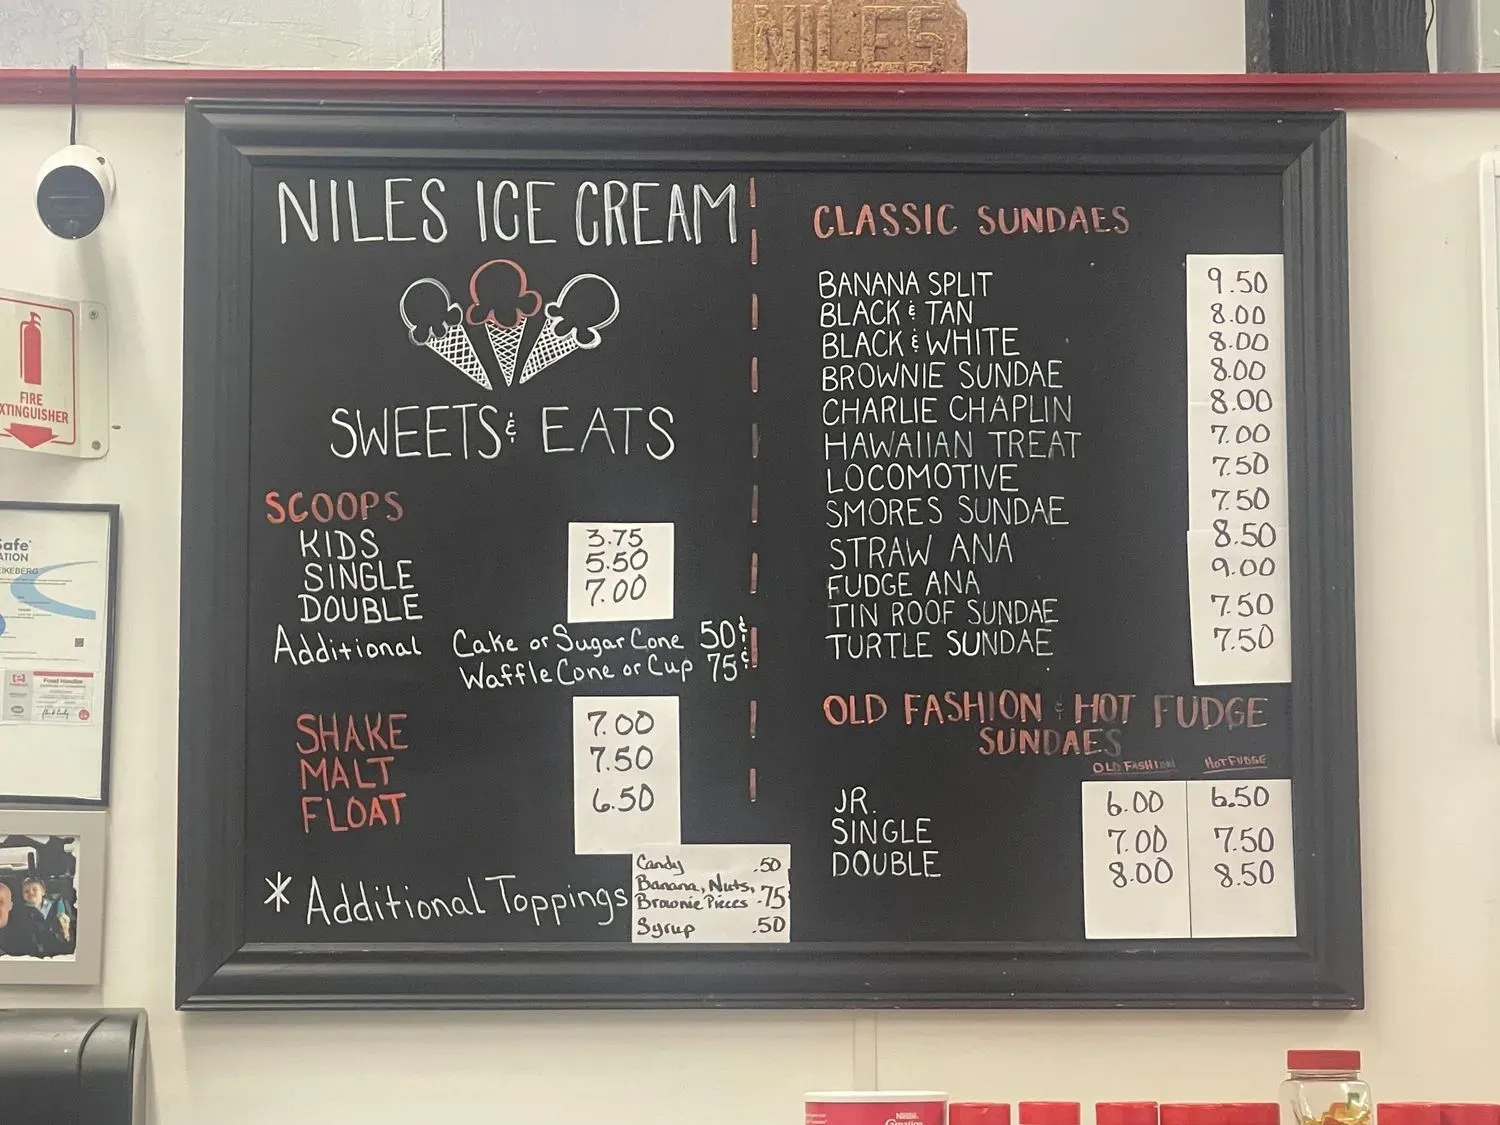 NILES
NILES ICE CREAM
SWEETS & EATS
SCOOPS
KIDS 3.75
SINGLE 5.50
DOUBLE 7.00
Additional Cake or Sugar Cone 50¢
Waffle Cone or Cup 75¢
SHAKE 7.00
MALT 7.50
FLOAT 6.50
* Additional Toppings
Candy .50
Banana, Nuts,
Brownie Pieces .75
Syrup .50
CLASSIC SUNDAES
BANANA SPLIT 9.50
BLACK & TAN 8.00
BLACK & WHITE 8.00
BROWNIE SUNDAE 8.00
CHARLIE CHAPLIN 8.00
HAWAIIAN TREAT 7.00
LOCOMOTIVE 7.50
SMORES SUNDAE 7.50
STRAW ANA 8.50
FUDGE ANA 9.00
TIN ROOF SUNDAE 7.50
TURTLE SUNDAE 7.50
OLD FASHION & HOT FUDGE
SUNDAES
OLD FASHION HOT FUDGE
JR. 6.00 6.50
SINGLE 7.00 7.50
DOUBLE 8.00 8.50
FIRE
XTINGUISHER
Safe
ATION
EIKEBERG
Food Handler
Nestlé
Carnation